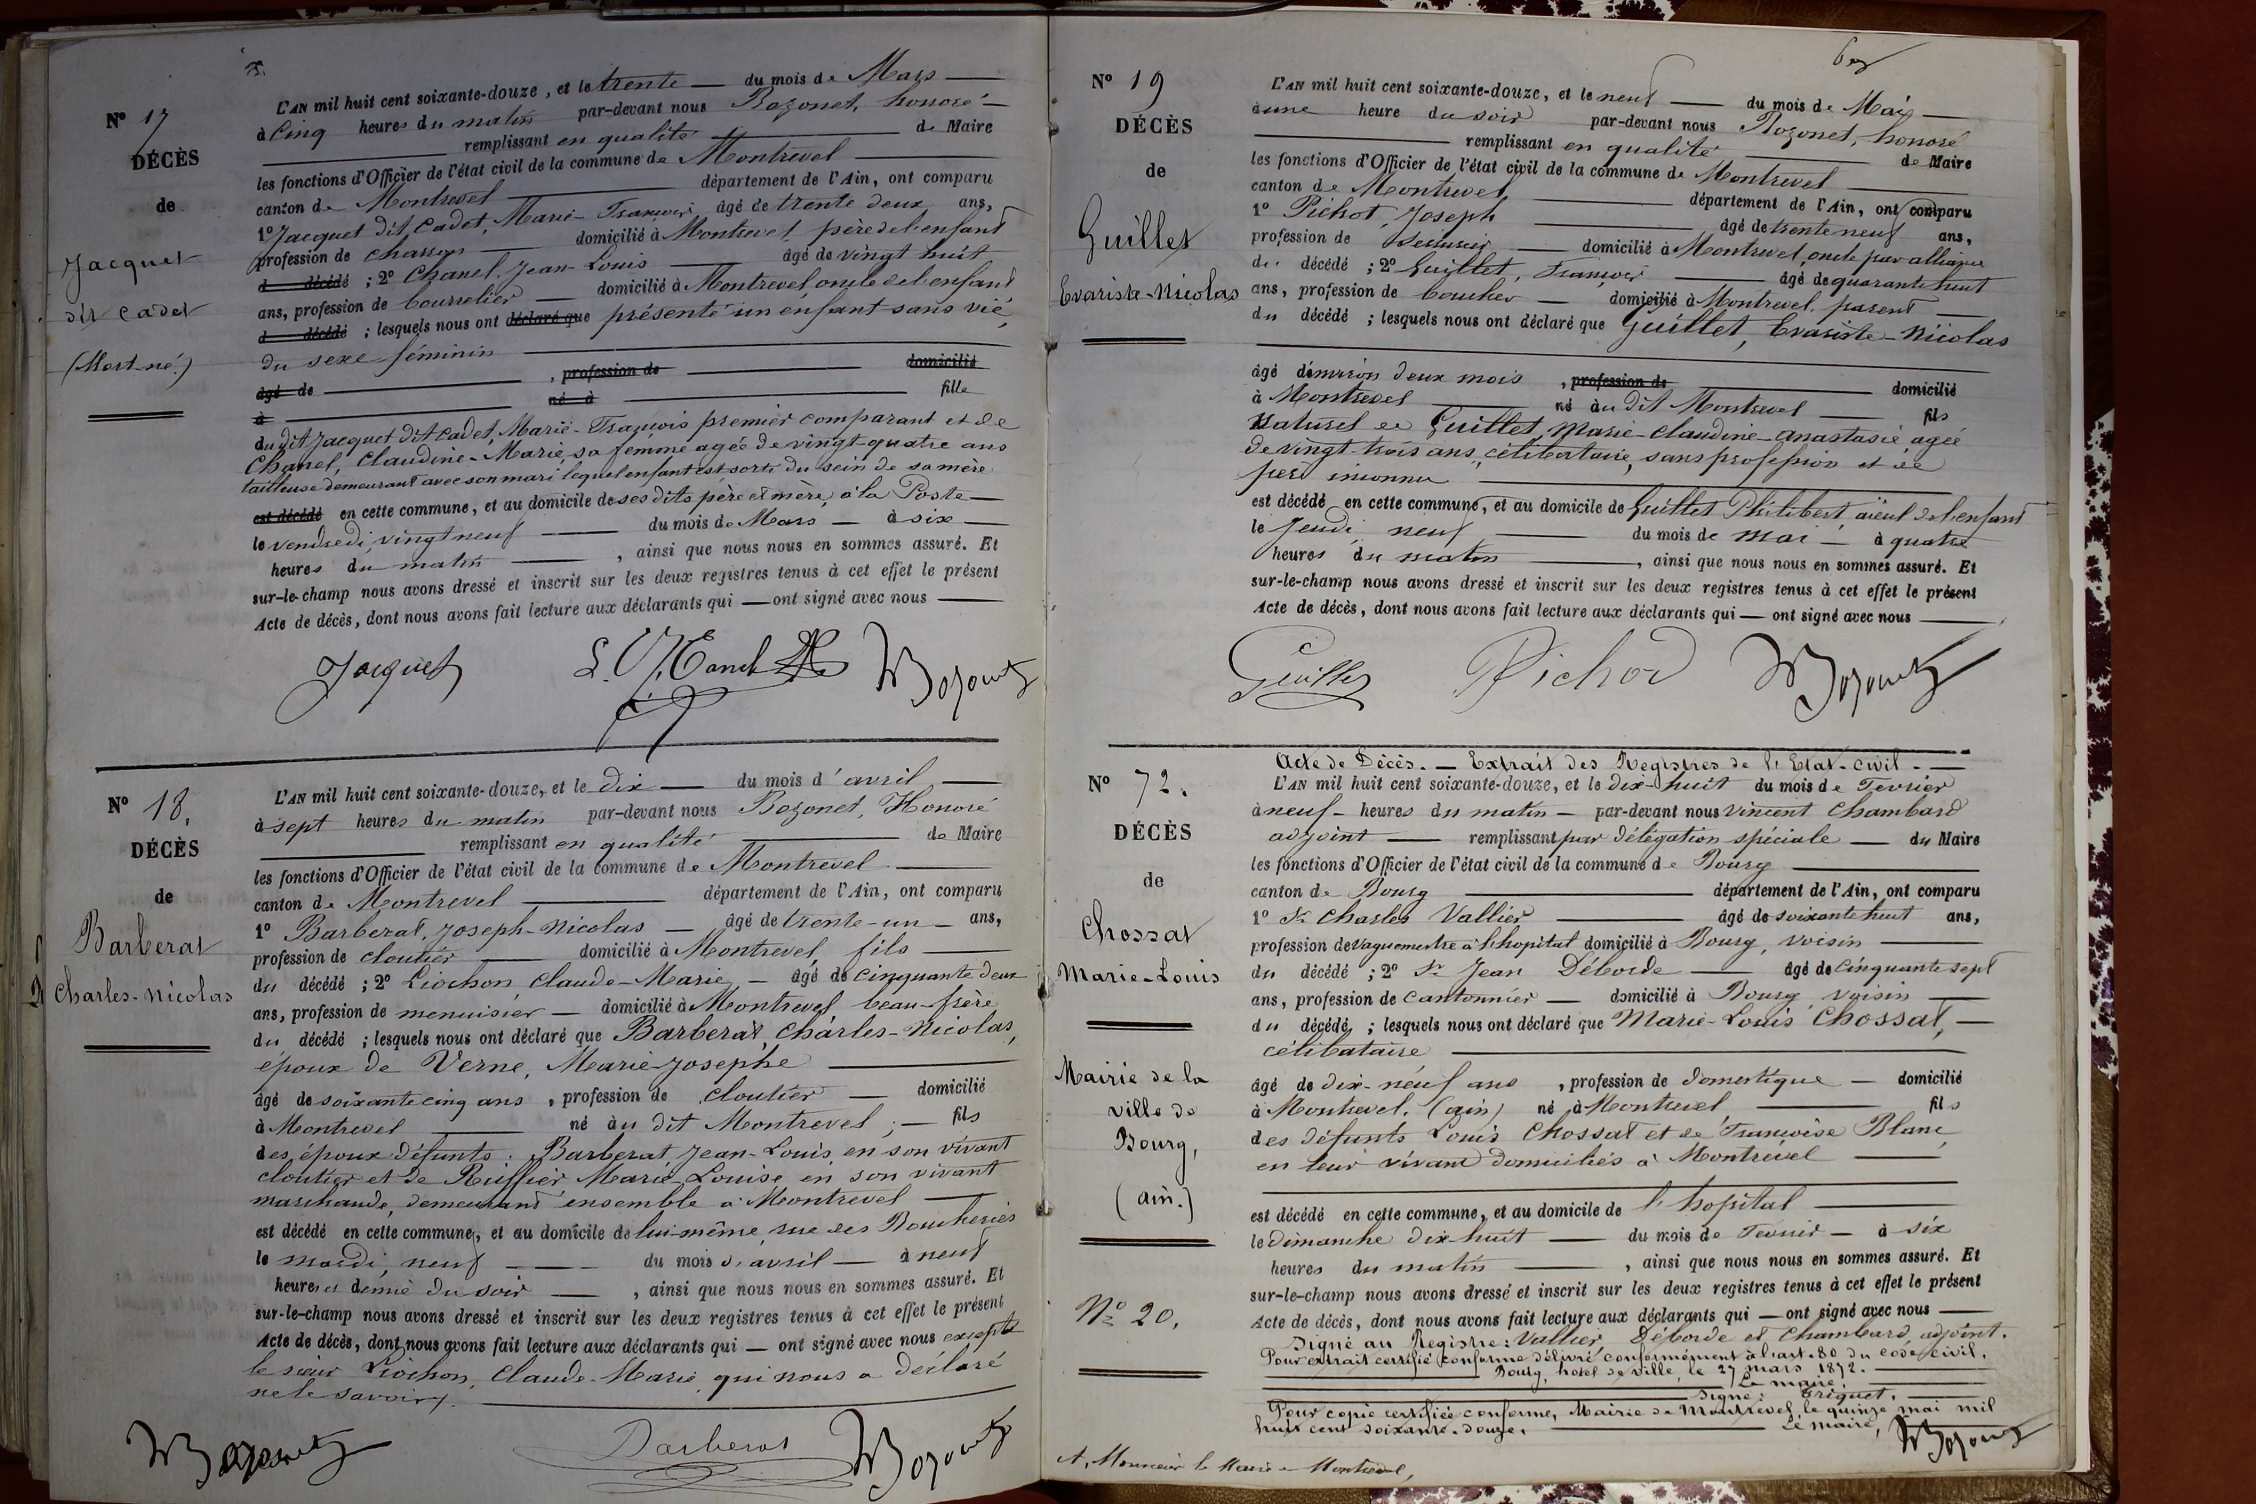 N° 17
DÉCÈS
de
Jacquet
dit Cadet
(Mort-né.)
L'AN mil huit cent soixante-douze, et le trente du mois de Mars
à Cinq heures du matin par-devant nous Bozonet, honoré
remplissant en qualité de Maire
les fonctions d'Officier de l'état civil de la commune de Montrevel
canton de Montrevel département de l'Ain, ont comparu
1° Jacquet dit Cadet, Marie-François âgé de trente deux ans,
profession de charron domicilié à Montrevel, père de l'enfant
d décédé ; 2° Chanel, Jean-Louis âgé de vingt huit
ans, profession de bourrelier domicilié à Montrevel, oncle de l'enfant
d décédé ; lesquels nous ont déclaré que présenté un enfant sans vie,
du sexe féminin
âgé de , profession de domicilié
à né à fille
du dit Jacquet dit Cadet, Marie-François premier comparant et de
Chanel, Claudine-Marie, sa femme agée de vingt-quatre ans
tailleuse demeurant avec son mari lequel enfant est sorti du sein de sa mère
est décédé en cette commune, et au domicile de ses dits père et mère, à la Poste
le vendredi, vingt neuf du mois de Mars à six
heures du matin , ainsi que nous nous en sommes assuré. Et
sur-le-champ nous avons dressé et inscrit sur les deux registres tenus à cet effet le présent
Acte de décès, dont nous avons fait lecture aux déclarants qui ont signé avec nous
Jacquet Bozonet
N° 18.
DÉCÈS
de
Barberat
Charles-Nicolas
L'AN mil huit cent soixante-douze, et le dix du mois d'avril
à sept heures du matin par-devant nous Bozonet, Honoré
remplissant en qualité de Maire
les fonctions d'Officier de l'état civil de la commune de Montrevel
canton de Montrevel département de l'Ain, ont comparu
1° Barberat, Joseph-Nicolas âgé de trente-un ans,
profession de cloutier domicilié à Montrevel, fils
du décédé ; 2° Liochon Claude-Marie âgé de cinquante deux
ans, profession de menuisier domicilié à Montrevel beau-frère
du décédé ; lesquels nous ont déclaré que Barberat, Charles-Nicolas,
époux de Verne, Marie-Josephe
âgé de soixante cinq ans , profession de cloutier domicilié
à Montrevel né au dit Montrevel ; fils
des époux défunts : Barberat Jean-Louis, en son vivant
cloutier et de Ruffier Marie-Louise, en son vivant
marchande, demeurant ensemble à Montrevel
est décédé en cette commune, et au domicile de lui-même, rue des Boucheries
le mardi, neuf du mois d'avril à neuf
heures et demie du soir , ainsi que nous nous en sommes assuré. Et
sur-le-champ nous avons dressé et inscrit sur les deux registres tenus à cet effet le présent
Acte de décès, dont nous avons fait lecture aux déclarants qui ont signé avec nous excepté
le sieur Liochon, Claude-Marie qui nous a déclaré
ne le savoir.
Bozonet Barberat Bozonet
N° 19
DÉCÈS
de
Guillet
Evariste-Nicolas
L'AN mil huit cent soixante-douze, et le neuf du mois de Mai
à une heure du soir par-devant nous Bozonet, honoré
remplissant en qualité de Maire
les fonctions d'Officier de l'état civil de la commune de Montrevel
canton de Montrevel département de l'Ain, ont comparu
1° Pichot, Joseph âgé de trente neuf ans,
profession de domicilié à Montrevel, oncle par alliance
du décédé ; 2° Guillet, François âgé de quarante huit
ans, profession de boucher domicilié à Montrevel, parent
du décédé ; lesquels nous ont déclaré que Guillet, Evariste-Nicolas
âgé d'environ deux mois , profession de domicilié
à Montrevel né au dit Montrevel fils
naturel de Guillet, Marie-Claudine-Anastasie agée
de vingt-trois ans, célibataire, sans profession et de
père inconnu
est décédé en cette commune, et au domicile de Guillet Philibert, aïeul de l'enfant
le Jeudi neuf du mois de mai à quatre
heures du matin , ainsi que nous nous en sommes assuré. Et
sur-le-champ nous avons dressé et inscrit sur les deux registres tenus à cet effet le présent
Acte de décès, dont nous avons fait lecture aux déclarants qui ont signé avec nous
Guillet Pichod Bozonet
Acte de Décès. — Extrait des Registres de l'Etat-civil.
N° 72.
DÉCÈS
de
Chossat
Marie-Louis
Mairie de la
ville de
Bourg,
(ain.)
N° 20.
L'AN mil huit cent soixante-douze, et le dix-huit du mois de Fevrier
à neuf heures du matin par-devant nous Vincent Chambard
adjoint remplissant par délégation spéciale du Maire
les fonctions d'Officier de l'état civil de la commune de Bourg
canton de Bourg département de l'Ain, ont comparu
1° Sr Charles Vallier âgé de soixante huit ans,
profession de Vaguemestre à l'hopital domicilié à Bourg, voisin
du décédé ; 2° Sr Jean Déborde âgé de cinquante sept
ans, profession de cantonnier domicilié à Bourg, voisin
du décédé ; lesquels nous ont déclaré que Marie-Louis Chossat,
célibataire
âgé de dix-neuf ans , profession de domestique domicilié
à Montrevel, (ain) né à Montrevel fils
des défunts Louis Chossat et de Françoise Blanc,
en leur vivant domiciliés à Montrevel
est décédé en cette commune, et au domicile de l'hopital
le dimanche dix-huit du mois de Fevrier à six
heures du matin , ainsi que nous nous en sommes assuré. Et
sur-le-champ nous avons dressé et inscrit sur les deux registres tenus à cet effet le présent
Acte de décès, dont nous avons fait lecture aux déclarants qui ont signé avec nous
Signé au Registre : Vallier, Déborde et Chambard, adjoint.
Pour extrait certifié conforme délivré conformément à l'art. 80 du code civil.
Bourg, hôtel de ville, le 27 mars 1872.
Le maire,
Signé :
Pour copie certifiée conforme, Mairie de Montrevel le quinze mai mil
huit cent soixante-douze. Le maire,
Bozonet
A Monsieur le Maire de Montrevel,